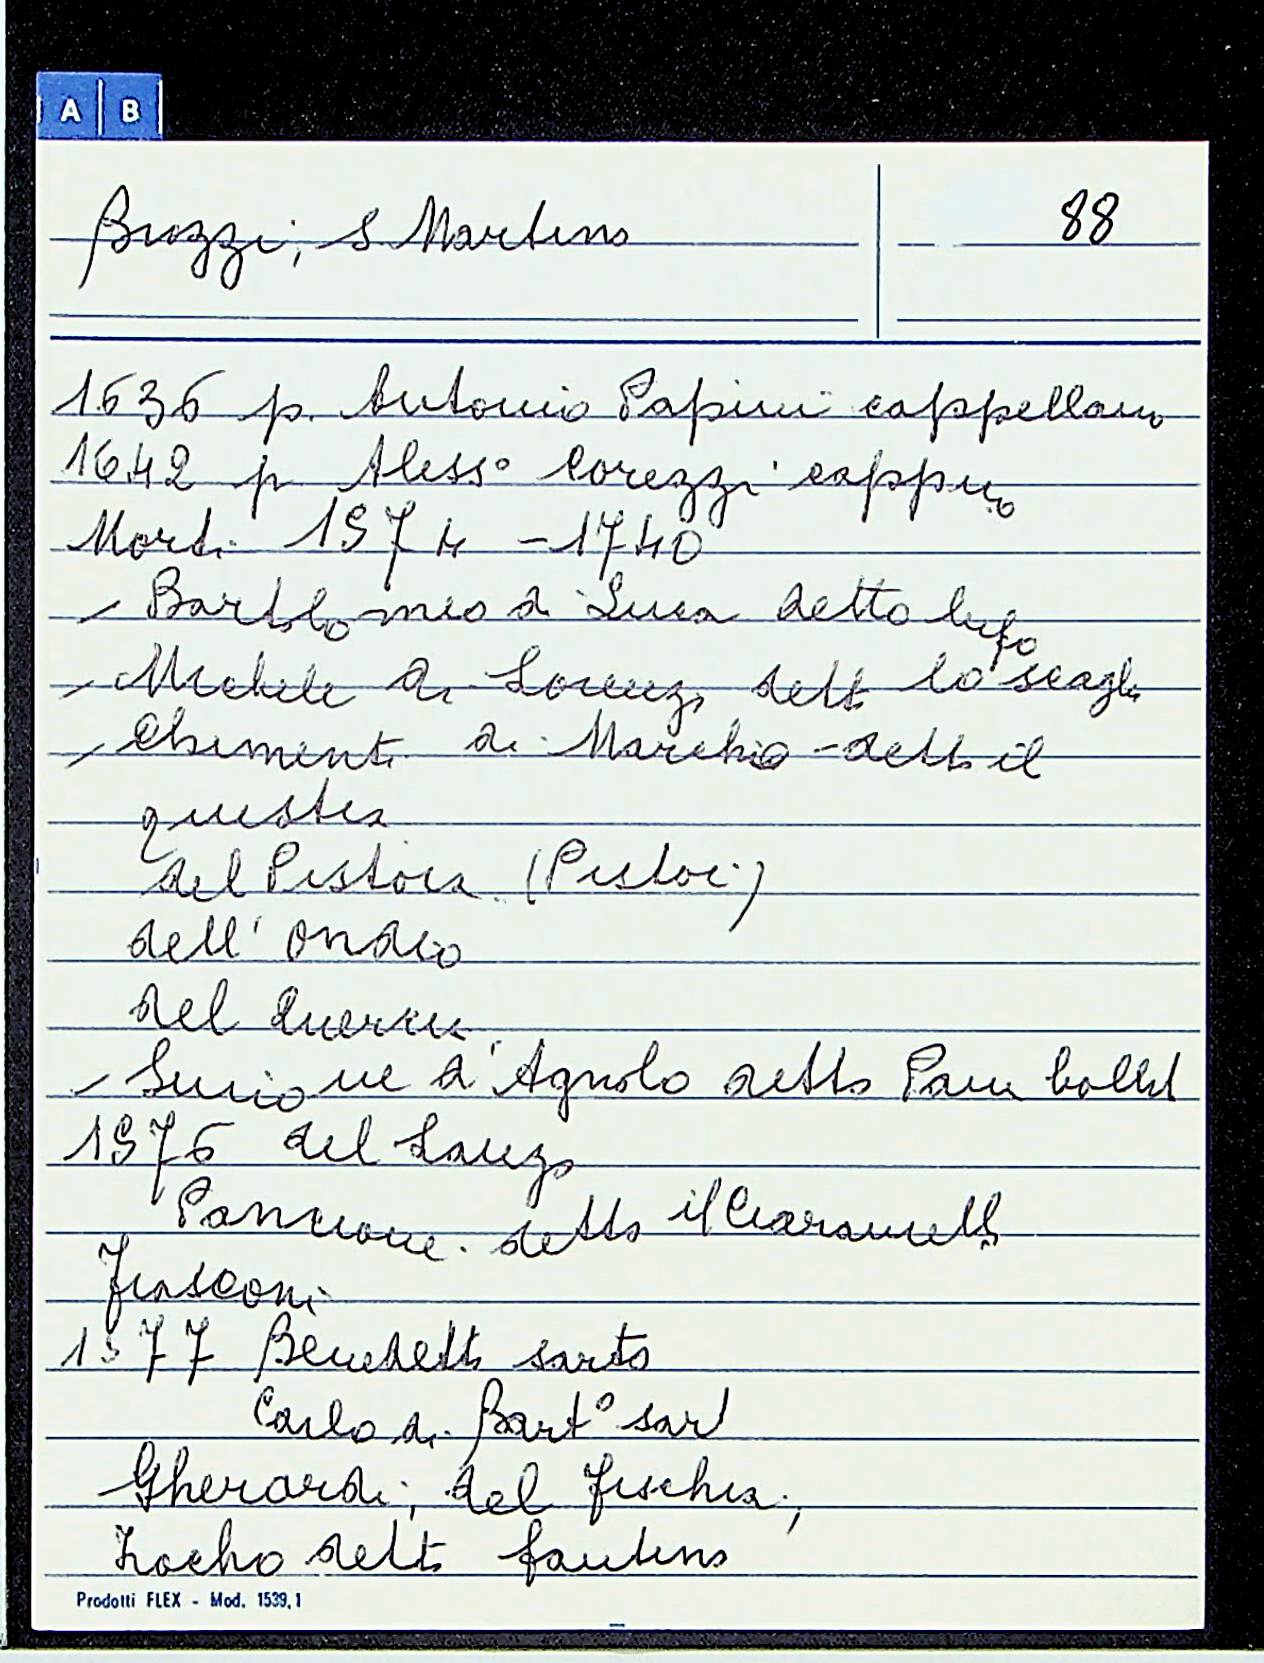 A B
Buzzi, S Martino
88
1636 p. Antonio Papini cappellano
1642 p Aless° Corezzi cappno
Morti 1574 - 1740
- Bartolomeo di Luca detto lupo
- Michele di Lorenzo detto lo
- Chimenti di Marchio - detto il
del Pistoia (Pistoi)
dell'
del
- Simone d'Agnolo detto
1576 del Lanzo
Pancione detto il Ciaramella
Frasconi
1577 Benedetto sarto
Carlo di Bart° sart
Gherardi, del Fischia,
detto fantino
Prodotti FLEX - Mod. 1539,1